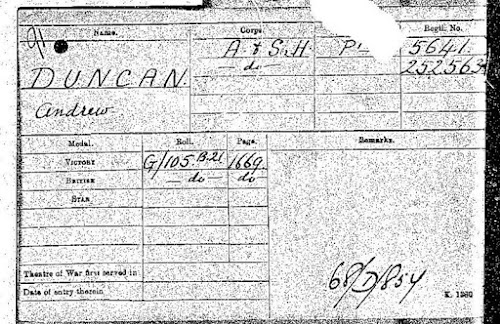 Name. Corps. Regtl. No.
DUNCAN. A & S. H. 5641.
Andrew — do —
Medal. Roll. Page. Remarks.
VICTORY G/105 B.21 1669
BRITISH — do — do
STAR
Theatre of War first served in
Date of entry therein
68/D/854
K. 1380